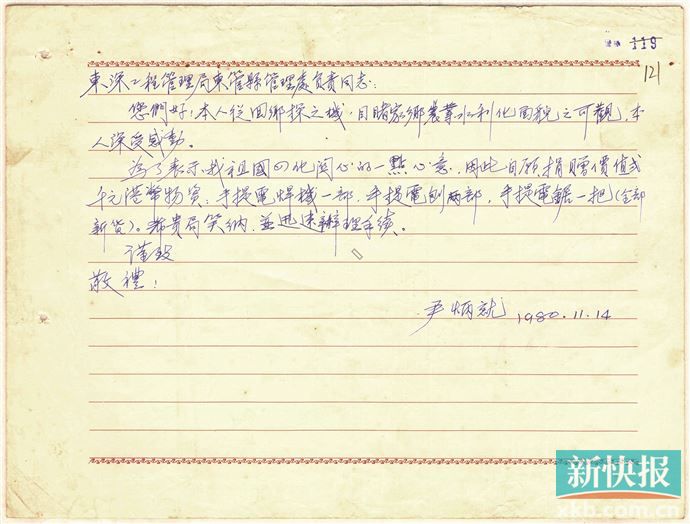 119
121
東深工程管理局東管縣管理處负责同志:
您們好!本人從回鄉探之城,目睹家鄉農業水利化面貌之可觀,本
人深受感動。
為了表示我祖國四化関心的一點心意,因此自願捐贈價值弍
千元港幣物资,手提電焊機一部,手提電刨两部,手提電鋸一把(全部
新货)。希貴局笑納,並迅速辦理手续。
谨致
敬禮!
尹炳就 1980.11.14
新快报
xkb.com.cn